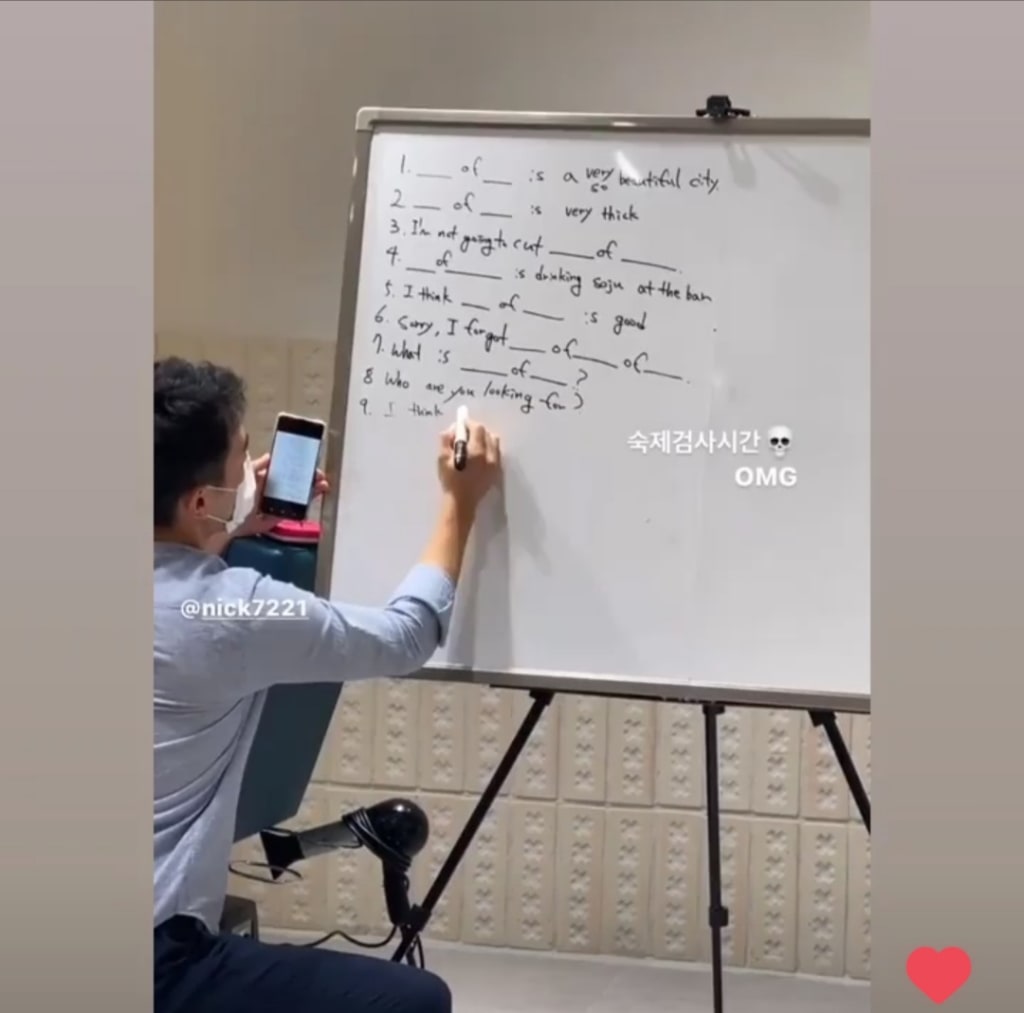 1. ___ of ___ is a very beautiful city
so
2 ___ of ___ is very thick
3. I'm not going to cut ____ of _____.
4. ___ of _____ is drinking soju at the bar
5. I think ___ of ____ is good
6. Sorry, I forgot ____ of ____ of ____.
7. What is ____ of ____?
8 Who are you looking for?
9. I think
숙제검사시간 💀
OMG
@nick7221